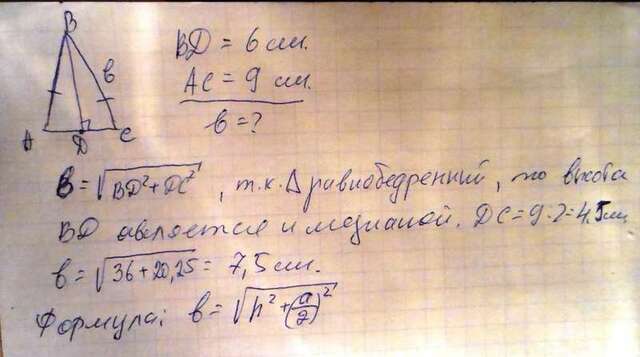 B
в
A
D
C
BD = 6 см.
AC = 9 см.
в = ?
в = √BD²+DC², т.к. Δ равнобедренный, то высота
BD является и медианой. DC = 9:2 = 4.5 см
в = √36+20,25 = 7,5 см.
Формула: в = √h²+(a/2)²